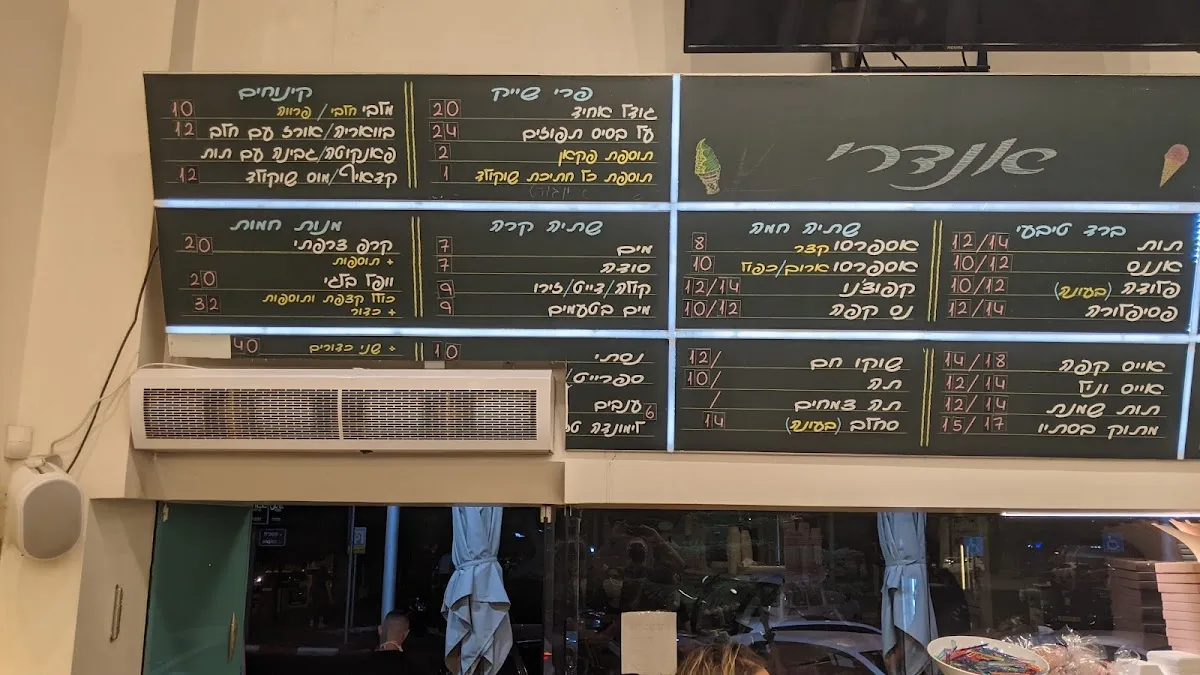 אנדרי
ברד טיבעי
תות 12/14
אננס 10/12
פלודה (בעונה) 10/12
פסיפלורה 12/14
אייס קפה 14/18
אייס וניל 12/14
תות שמנת 12/14
מתוק בסתיו 15/17
שתיה חמה
אספרסו קצר 8
אספרסו ארוך/כפול 10
קפוצ'נו 12/14
נס קפה 10/12
שוקו חם 12/
תה 10/
תה צמחים /
סחלב (בעונה) 14
פרי שייק
גודל אחיד 20
על בסיס תפוזים 24
תוספת פקאן 2
תוספת כל חתיכת שוקולד 1
שתיה קרה
מים 7
סודה 7
קולה/דייט/זירו 9
מים בטעמים 9
נסתי 10
ספרייט/
ענבים 6
לימונדה
קינוחים
מלבי חלבי/פרווה 10
בוואריה/אורז עם חלב 12
פאנקוטה/גבינה עם תות
קדאיף/מוס שוקולד 12
מנות חמות
קרפ צרפתי 20
+ תוספות
וופל בלגי 20
כולל קצפת ותוספות
+ כדור 32
+ שני כדורים 40